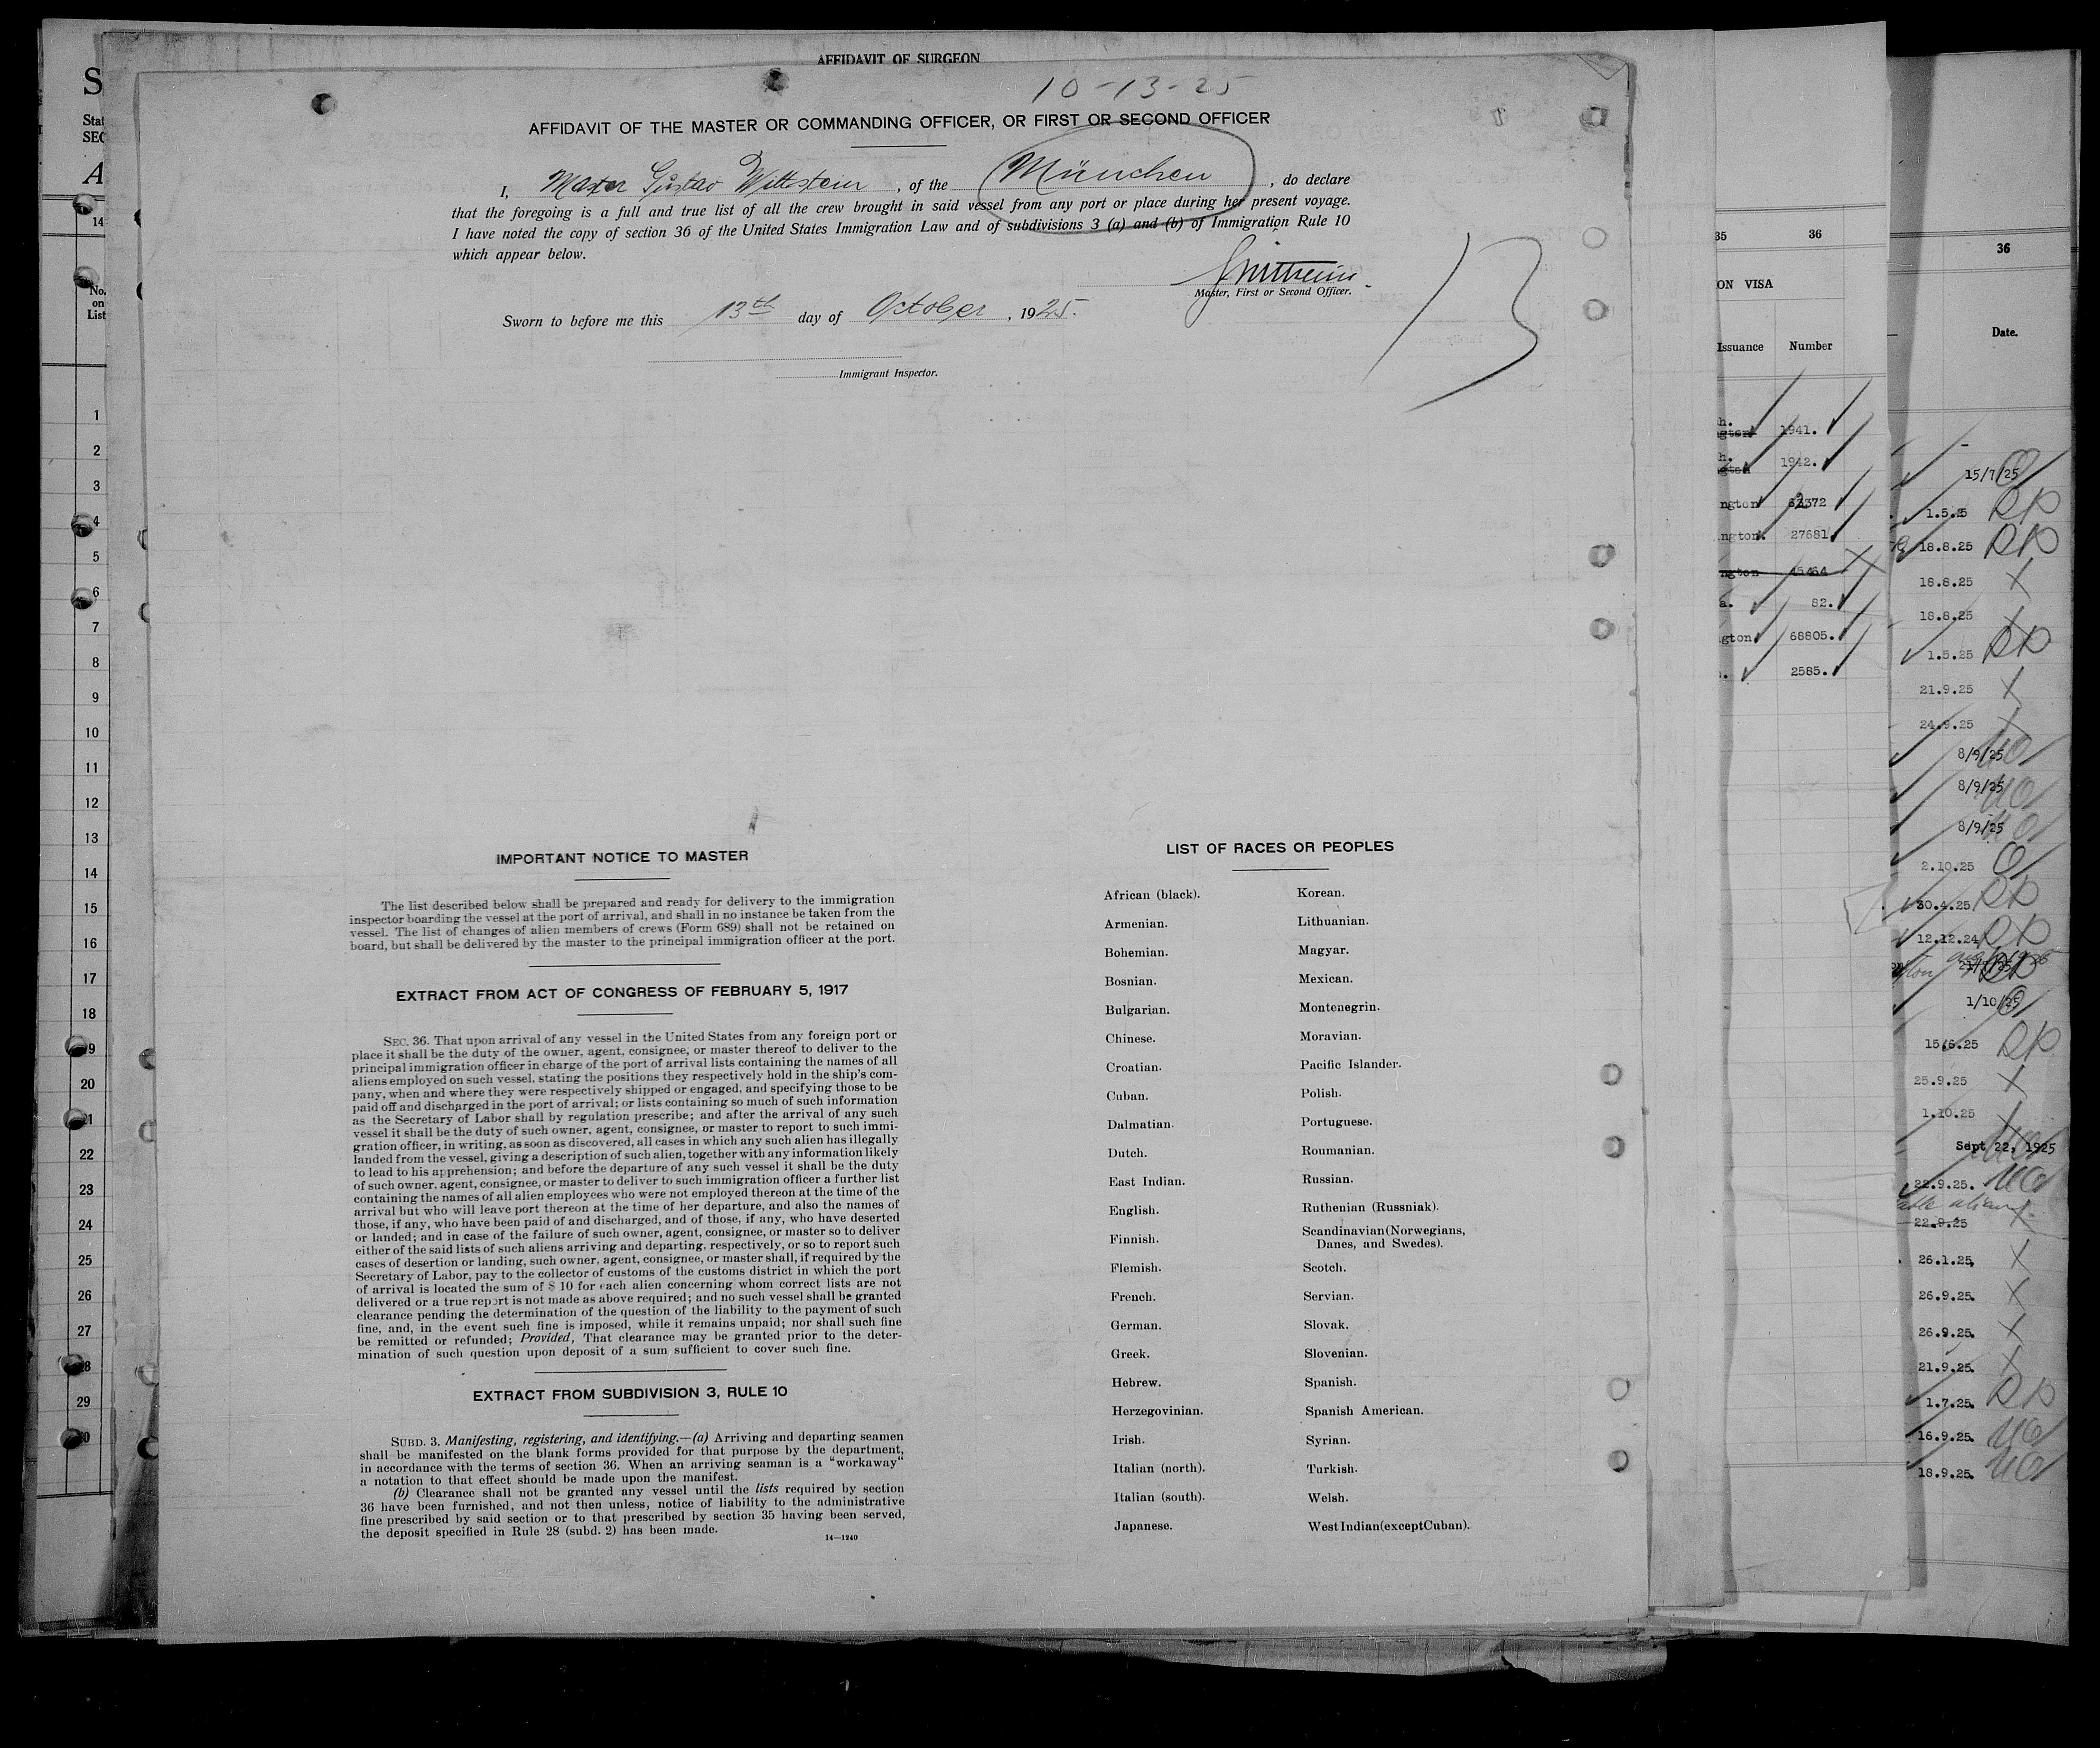 AFFIDAVIT OF SURGEON
10-13-25
AFFIDAVIT OF THE MASTER OR COMMANDING OFFICER, OR FIRST OR SECOND OFFICER
I, Master Gustav Wittstein, of the München, do declare
that the foregoing is a full and true list of all the crew brought in said vessel from any port or place during her present voyage.
I have noted the copy of section 36 of the United States Immigration Law and of subdivisions 3 (a) and (b) of Immigration Rule 10
which appear below.
Master, First or Second Officer.
13
Sworn to before me this 13th day of October, 1925.
Immigrant Inspector.
IMPORTANT NOTICE TO MASTER
The list described below shall be prepared and ready for delivery to the immigration
inspector boarding the vessel at the port of arrival, and shall in no instance be taken from the
vessel. The list of changes of alien members of crews (Form 689) shall not be retained on
board, but shall be delivered by the master to the principal immigration officer at the port.
EXTRACT FROM ACT OF CONGRESS OF FEBRUARY 5, 1917
SEC. 36. That upon arrival of any vessel in the United States from any foreign port or
place it shall be the duty of the owner, agent, consignee, or master thereof to deliver to the
principal immigration officer in charge of the port of arrival lists containing the names of all
aliens employed on such vessel, stating the positions they respectively hold in the ship's com-
pany, when and where they were respectively shipped or engaged, and specifying those to be
paid off and discharged in the port of arrival; or lists containing so much of such information
as the Secretary of Labor shall by regulation prescribe; and after the arrival of any such
vessel it shall be the duty of such owner, agent, consignee, or master to report to such immi-
gration officer, in writing, as soon as discovered, all cases in which any such alien has illegally
landed from the vessel, giving a description of such alien, together with any information likely
to lead to his apprehension; and before the departure of any such vessel it shall be the duty
of such owner, agent, consignee, or master to deliver to such immigration officer a further list
containing the names of all alien employees who were not employed thereon at the time of the
arrival but who will leave port thereon at the time of her departure, and also the names of
those, if any, who have been paid of and discharged, and of those, if any, who have deserted
or landed; and in case of the failure of such owner, agent, consignee, or master so to deliver
either of the said lists of such aliens arriving and departing, respectively, or so to report such
cases of desertion or landing, such owner, agent, consignee, or master shall, if required by the
Secretary of Labor, pay to the collector of customs of the customs district in which the port
of arrival is located the sum of $ 10 for each alien concerning whom correct lists are not
delivered or a true report is not made as above required; and no such vessel shall be granted
clearance pending the determination of the question of the liability to the payment of such
fine, and, in the event such fine is imposed, while it remains unpaid; nor shall such fine
be remitted or refunded; Provided, That clearance may be granted prior to the deter-
mination of such question upon deposit of a sum sufficient to cover such fine.
EXTRACT FROM SUBDIVISION 3, RULE 10
SUBD. 3. Manifesting, registering, and identifying.—(a) Arriving and departing seamen
shall be manifested on the blank forms provided for that purpose by the department,
in accordance with the terms of section 36. When an arriving seaman is a "workaway"
a notation to that effect should be made upon the manifest.
(b) Clearance shall not be granted any vessel until the lists required by section
36 have been furnished, and not then unless, notice of liability to the administrative
fine prescribed by said section or to that prescribed by section 35 having been served,
the deposit specified in Rule 28 (subd. 2) has been made.
14—1240
LIST OF RACES OR PEOPLES
African (black).
Armenian.
Bohemian.
Bosnian.
Bulgarian.
Chinese.
Croatian.
Cuban.
Dalmatian.
Dutch.
East Indian.
English.
Finnish.
Flemish.
French.
German.
Greek.
Hebrew.
Herzegovinian.
Irish.
Italian (north).
Italian (south).
Japanese.
Korean.
Lithuanian.
Magyar.
Mexican.
Montenegrin.
Moravian.
Pacific Islander.
Polish.
Portuguese.
Roumanian.
Russian.
Ruthenian (Russniak).
Scandinavian (Norwegians,
Danes, and Swedes).
Scotch.
Servian.
Slovak.
Slovenian.
Spanish.
Spanish American.
Syrian.
Turkish.
Welsh.
West Indian (except Cuban).
S
A
14
No.
on
List
1
2
3
4
5
6
7
8
9
10
11
12
13
14
15
16
17
18
20
22
23
24
25
26
27
29
35 36
ON VISA
Issuance Number
1941.
1942.
27681
82.
68805.
2585.
36
Date.
15/7/25
1.5.25
18.8.25
18.8.25
18.8.25
1.5.25
21.9.25
24.9.25
8/9/25
8/9/25
8/9/25
2.10.25
30.4.25
12.12.24
1/10/25
15/6.25
25.9.25
1.10.25
Sept 22, 1925
22.9.25.
22.9.25
26.1.25,
26.9.25.
26.9.25.
21.9.25.
1.7.25.
16.9.25.
18.9.25.